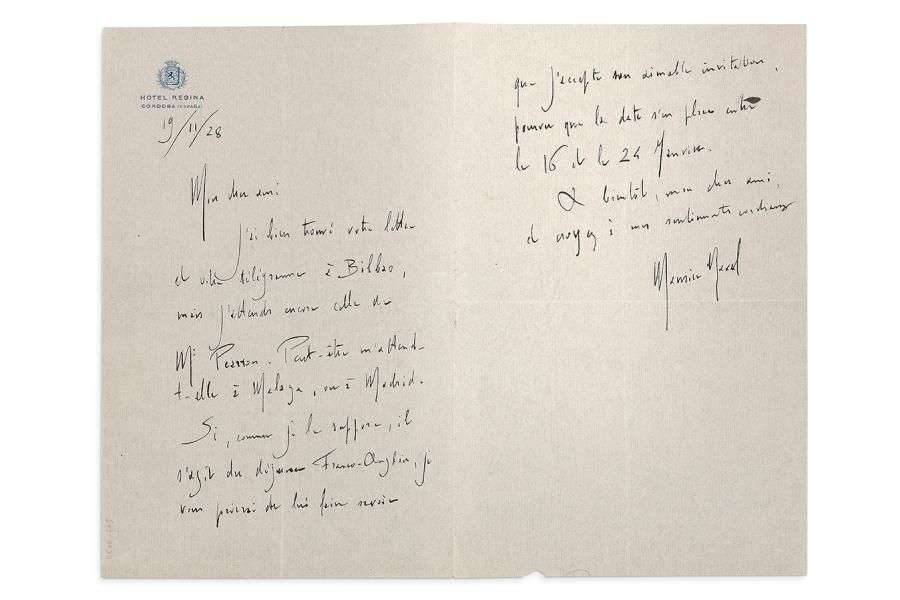 HOTEL REGINA
CÓRDOBA (ESPAÑA)
19/11/28
Mon cher ami
j'ai bien trouvé votre lettre
et votre télégramme à Bilbao,
mais j'attends encore celle de
Mr Pearson. Peut-être m'attend-
t-elle à Malaga, ou à Madrid.
Si, comme je le suppose, il
s'agit du déjeuner Franco-Anglais, je
vous prierai de lui faire savoir
que j'accepte son aimable invitation,
pourvu que la date s'en place entre
le 16 et le 24 Janvier.
A bientôt, mon cher ami,
et croyez à mes sentiments cordiaux
Maurice Ravel